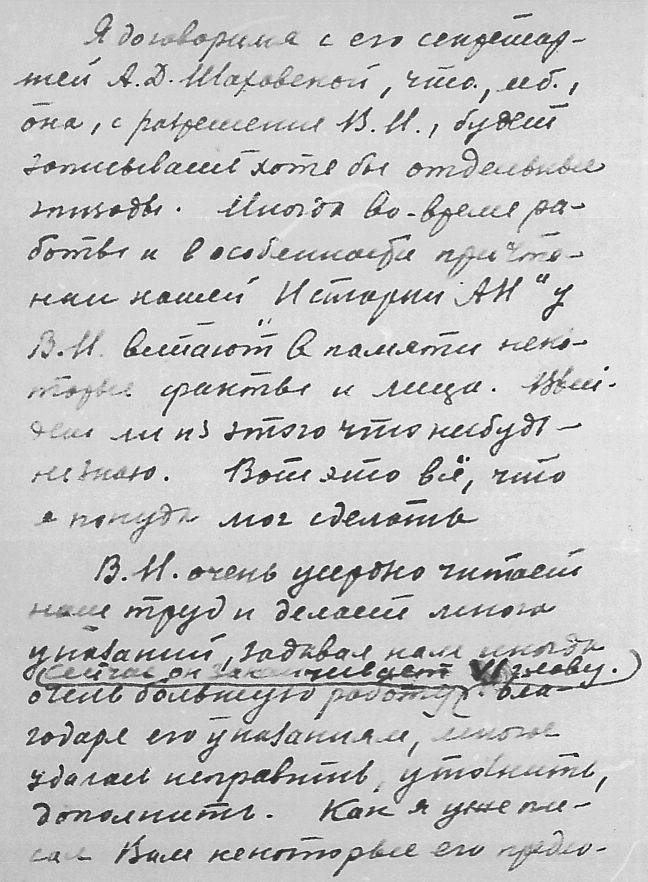 Я договорился с его секретар-
тей А.Д. Шаховской, что, м.б.,
она, с разрешения В.И., будет
записывать хотя бы отдельные
эпизоды. Иногда во-время ра-
боты и в особенности при чте-
нии нашей "Истории АН" у
В.И. встают в памяти неко-
торые факты и лица. Вый-
дет ли из этого что нибудь -
не знаю. Вот это всё, что
я покуда мог сделать
В.И. очень усердно читает
наш труд и делает много
указаний, задавая нам иногда
(Сейчас он заканчивает VI главу.)
очень большую работу. Бла-
годаря его указаниям, многое
удалось исправить, уточнить,
дополнить. Как я уже пи-
сал Вам некоторые его предло-